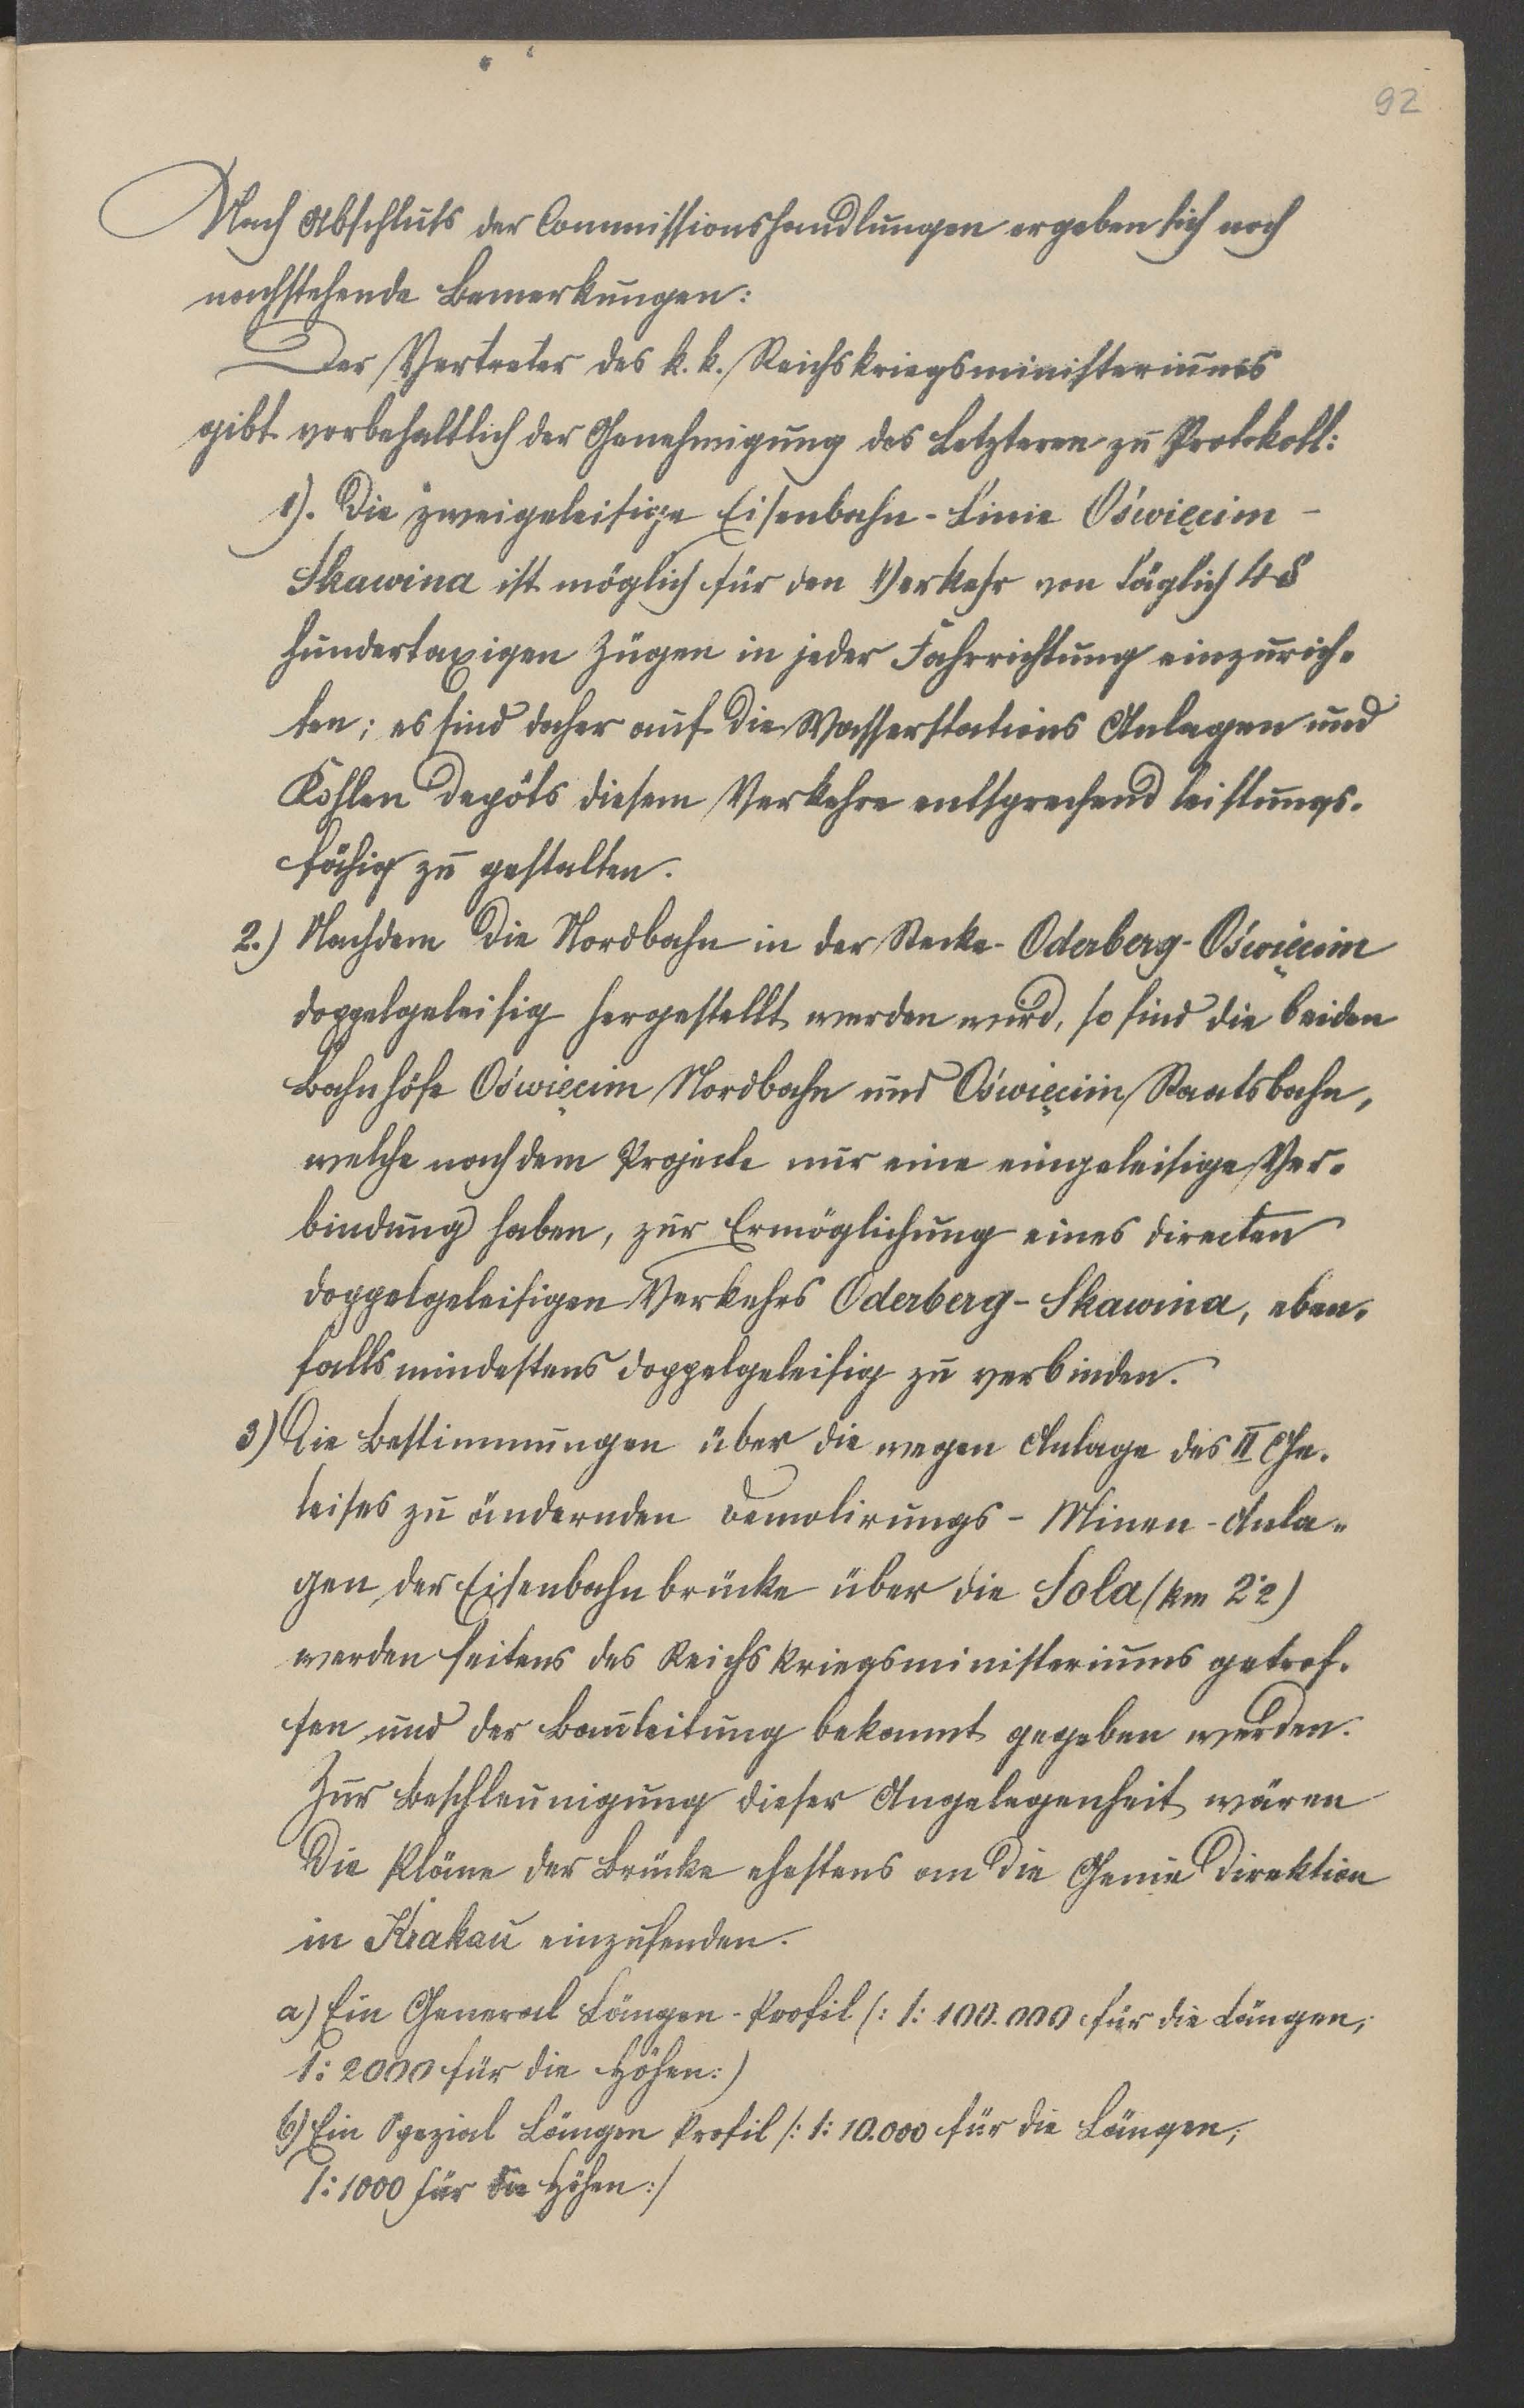 92
Nach Abschluß der Commissionshandlungen ergeben sich noch
nachstehende Bemerkungen:
Der Vertreter des k. k. Reichskriegsministeriums
gibt vorbehaltlich der Genehmigung des Letzteren zu Protokoll:
1). Die zweigeleisige Eisenbahn-Linie Oświęcim -
Skawina ist möglich für den Verkehr von täglich 48
hundertaxigen Zügen in jeder Fahrrichtung einzurich-
ten; es sind daher auf die Wasserstations Anlagen und
Kohlen Depôts diesem Verkehre entsprechend leistungs-
fähig zu gestalten.
2.) Nachdem die Nordbahn in der Strecke Oderberg-Oświęcim
doppelgeleisig hergestellt werden wird, so sind die beiden
Bahnhöfe Oświęcim Nordbahn und Oświęcim Staatsbahn,
welche nach dem Projecte nur eine eingeleisige Ver-
bindung haben, zur Ermöglichung eines directen
doppelgeleisigen Verkehrs Oderberg-Skawina, eben-
falls mindestens doppelgeleisig zu verbinden.
3) Die Bestimmungen über die wegen Anlage des II Ge-
leises zu ändernden Demolirungs-Minen-Anla-
gen der Eisenbahnbrücke über die Sola (km 2·2)
werden seitens des Reichskriegsministeriums getrof-
fen und der Bauleitung bekannt gegeben werden.
Zur Beschleunigung dieser Angelegenheit wären
die Pläne der Brücke ehestens an die Genie Direktion
in Krakau einzusenden.
a) Ein General Längen-Profil (: 1:100.000 für die Längen,
1:2000 für die Höhen:)
b) Ein Spezial Längen Profil /: 1:10.000 für die Längen,
1:1000 für die Höhen:/